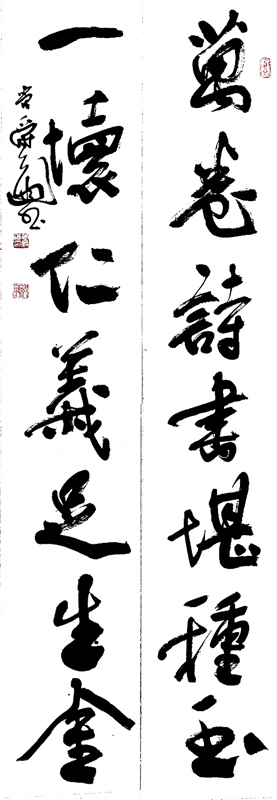 萬卷詩書堪種玉
一壞仁義足生金